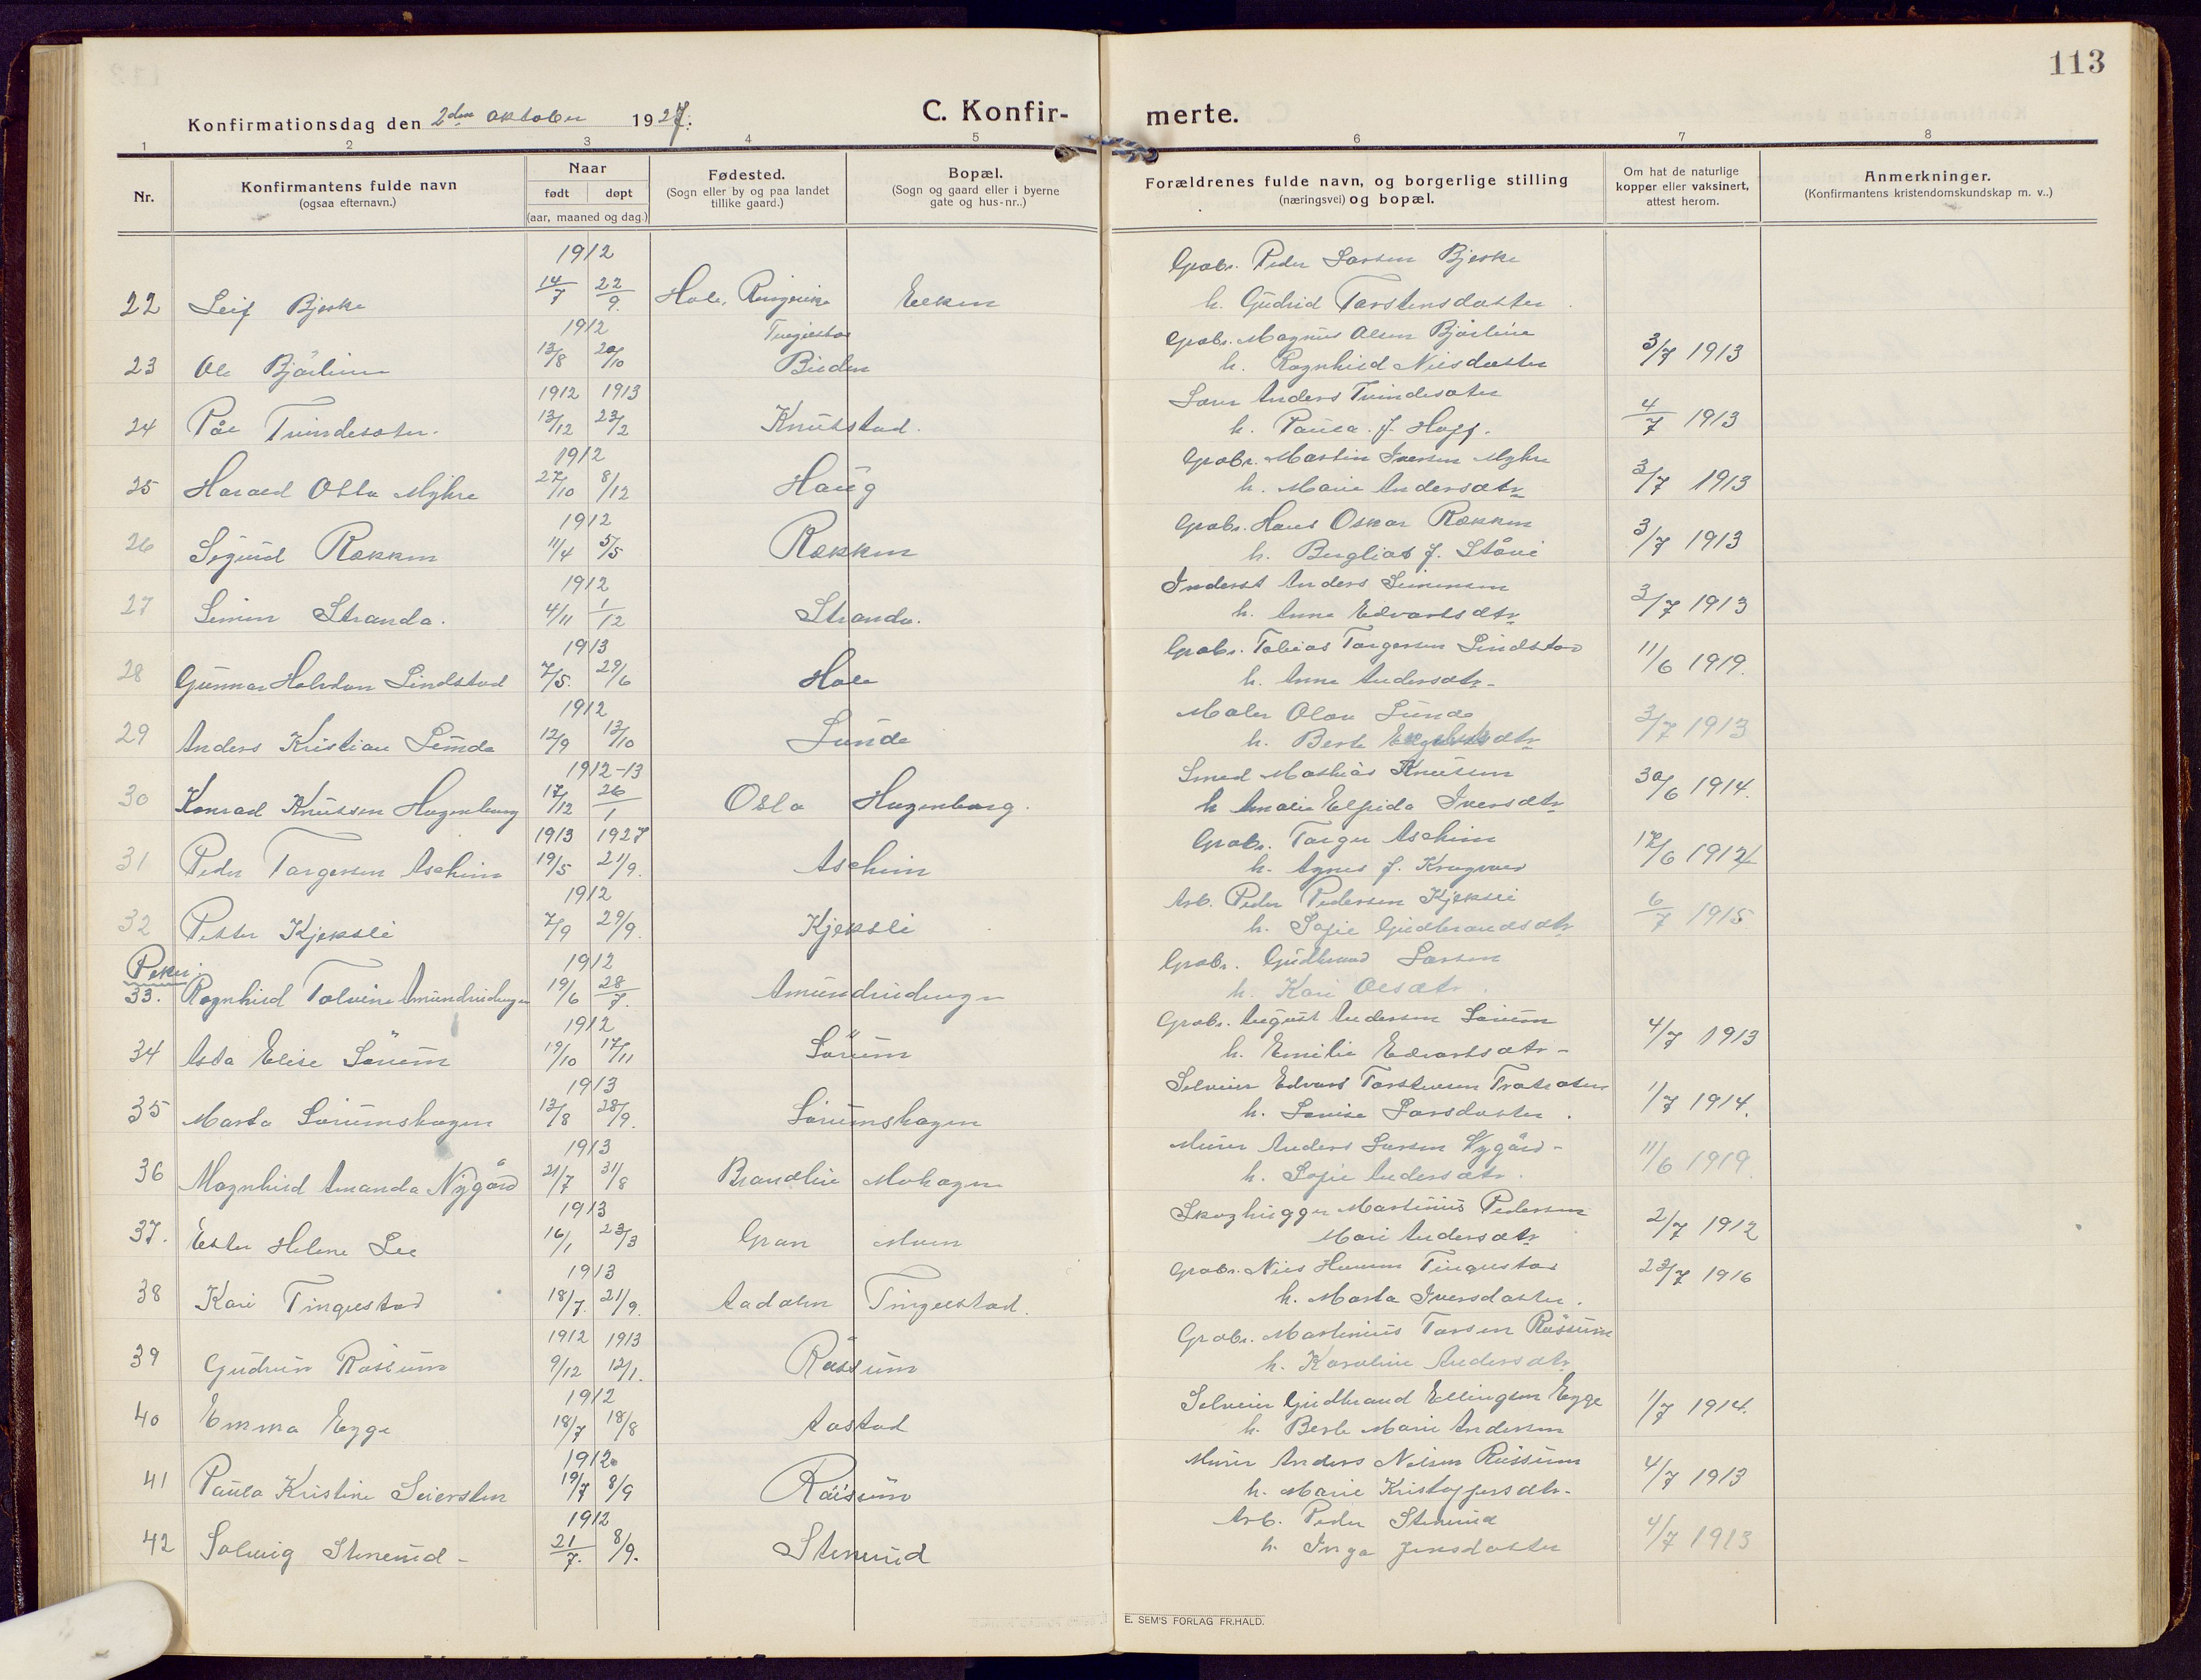 113
Konfirmationsdag den 2den oktober 1927.
C. Konfir-
merte.
1 2 3 4 5 6 7 8
Nr.
Konfirmantens fulde navn
(ogsaa efternavn.)
Naar
født døpt
(aar, maaned og dag.)
Fødested.
(Sogn eller by og paa landet
tillike gaard.)
Bopæl.
(Sogn og gaard eller i byerne
gate og hus-nr..)
Forældrenes fulde navn, og borgerlige stilling
(næringsvei) og bopæl.
Om hat de naturlige
kopper eller vaksinert,
attest herom.
Anmerkninger.
(Konfirmantens kristendomskundskap m. v..)
1912
Grabr. Peder Larsen Bjerke
22 Leif Bjerke 14/7 22/9. Hole, Ringerike
h. Gudrid Torstensdatter
1912
Grabr. Magnus Olsen
23 Ole 13/8 20/10
h. Ragnhild Nilsdatter 3/7 1913
1912 1913
Anders Tvindesæter
24 Pål Tvindesæter. 13/12 23/2 Knutstad.
h. Paula. f. Hoff. 4/7 1913
1912
Grabr. Martin Iversen Myhre
25 Harald Otto Myhre 27/10 8/12 Haug
h. Marie Andersdtr. 3/7 1913
1912
Grabr. Hans Oskar Rækken
26 Sigurd Rækken 11/4 5/5 Rækken
h. Bergliot f. 3/7 1913
1912
Inderst Anders Simensen
27 Simen Stranda. 4/11 1/12 Stranda.
h. Anna Edvartsdtr. 3/7 1913
1913
Grabr. Tobias Torgersen Lindstad
28 Gunnar Halvdan Lindstad 7/5. 29/6 Hole
h. Anna Andersdtr. 11/6 1919.
1912
Maler Olav Lunde
29 Anders Kristian Lunde 12/9 13/10 Lunde
h. Berte 3/7 1913
1912-13
Smed Mathias Knutsen
30 Konrad Knutsen Hagenborg 17/12 26/1 Oslo Hagenborg.
h Amalie Elfrida Iversdtr. 30/6 1914.
1913 1927
Grabr. Torger Aschim
31 Peder Torgersen Aschim 19/5 21/9. Aschim
h. Agnes f.
1912
Arb. Peder Pedersen Kjeksli
32 Petter Kjeksli 7/9 29/9. Kjeksli
h. Sofie Gudbrandsdtr. 6/7 1915
Piker.
1912
Grabr. Gudbrand Larsen
33. Ragnhild 19/6 28/7.
h. Kari Olsdtr.
1912
Grabr. August Andersen Sørum
34 Asta Elise Sørum 19/10 17/11 Sørum
h. Emilie Edvartsdtr - 4/7 1913
1913
Selveier Edvard Torstensen
35 Marta Sørumshagen 13/8 28/9. Sørumshagen
h. Lovise Larsdatter. 1/7 1914.
1913
Murer Anders Larsen Nygård -
36 Magnhild Amanda Nygård 21/7 31/8 Brandbu Mohagen
h. Sofie Andersdtr. 11/6 1919.
1913
Skoghugger Martinius Pedersen
37. Ester Helene Lee 16/1 23/3 Gran Moen
Mari Andersdtr. 2/7 1912
1913
Grabr. Nils Hansen Tingelstad
38 Kari Tingelstad 18/7. 21/9. Aadalen Tingelstad.
h. Marta Iversdatter. 23/7 1916
1912 1913
Grabr. Martinius Larsen Røssum
39 Gudrun Røssum 9/12 12/1. Røssum
h. Karoline Andersdtr.
1912
Selveier Gudbrand Ellingsen Egge
40 Emma Egge 18/7 18/8 Aastad
h. Berte Marie Andersen 1/7 1914.
1912
Murer Anders Nilsen Røssum
41 Paula Kristine Seiersten 19/7 8/9 Røissum
h. Marie Kristoffersdtr. 4/7 1913
1912
Arb. Peder Stenerud
42 Solveig Stenerud - 21/7. 8/9. Stenerud
h. Inga Jensdatter 4/7 1913
E. SEM'S FORLAG FR.HALD.